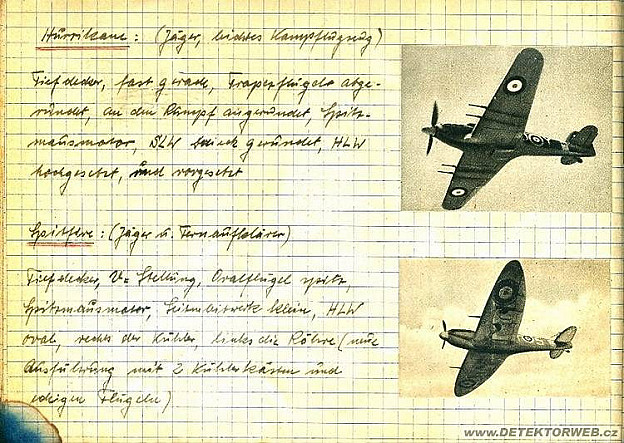 Hurrikane: (Jäger, leichtes Kampflugzeug)
Tiefdecker, fast gerade, Trapezflügel abge-
rundet, an den Rumpf angerundet, Spitz-
mausmotor, SLW dreieck gerundet, HLW
hochgesetzt, und vorgesetzt
Spitfire: (Jäger u. Fernaufklärer)
Tiefdecker, V-Stellung, Ovalflügel spitz,
Spitzmausmotor, Seitenleitwerk klein, HLW
oval, rechts der Kühler, links die Röhre (neue
Ausführung mit 2 Kühlerkästen und
eckigen Flügeln)
www.DETEKTORWEB.cz